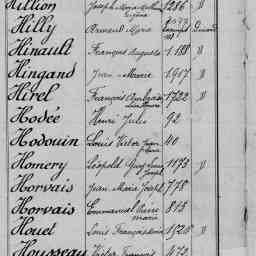 Hillion Joseph Marie 1286 D
Hilly Armand Marie
Hinault François Auguste 1188 D
Hingand Jean Marie 1917 D
Hirel François Ambroise 1722 D
Hodée Henri Jules 92
Hodouin Louis Victor Jean 40
Homery Léopold Guy Joseph 1173 D
Horvais Jean Marie Joseph 778
Horvais Emmanuel Pierre Marie 815
Houet Louis François 1526 D
Housseau Victor François 473